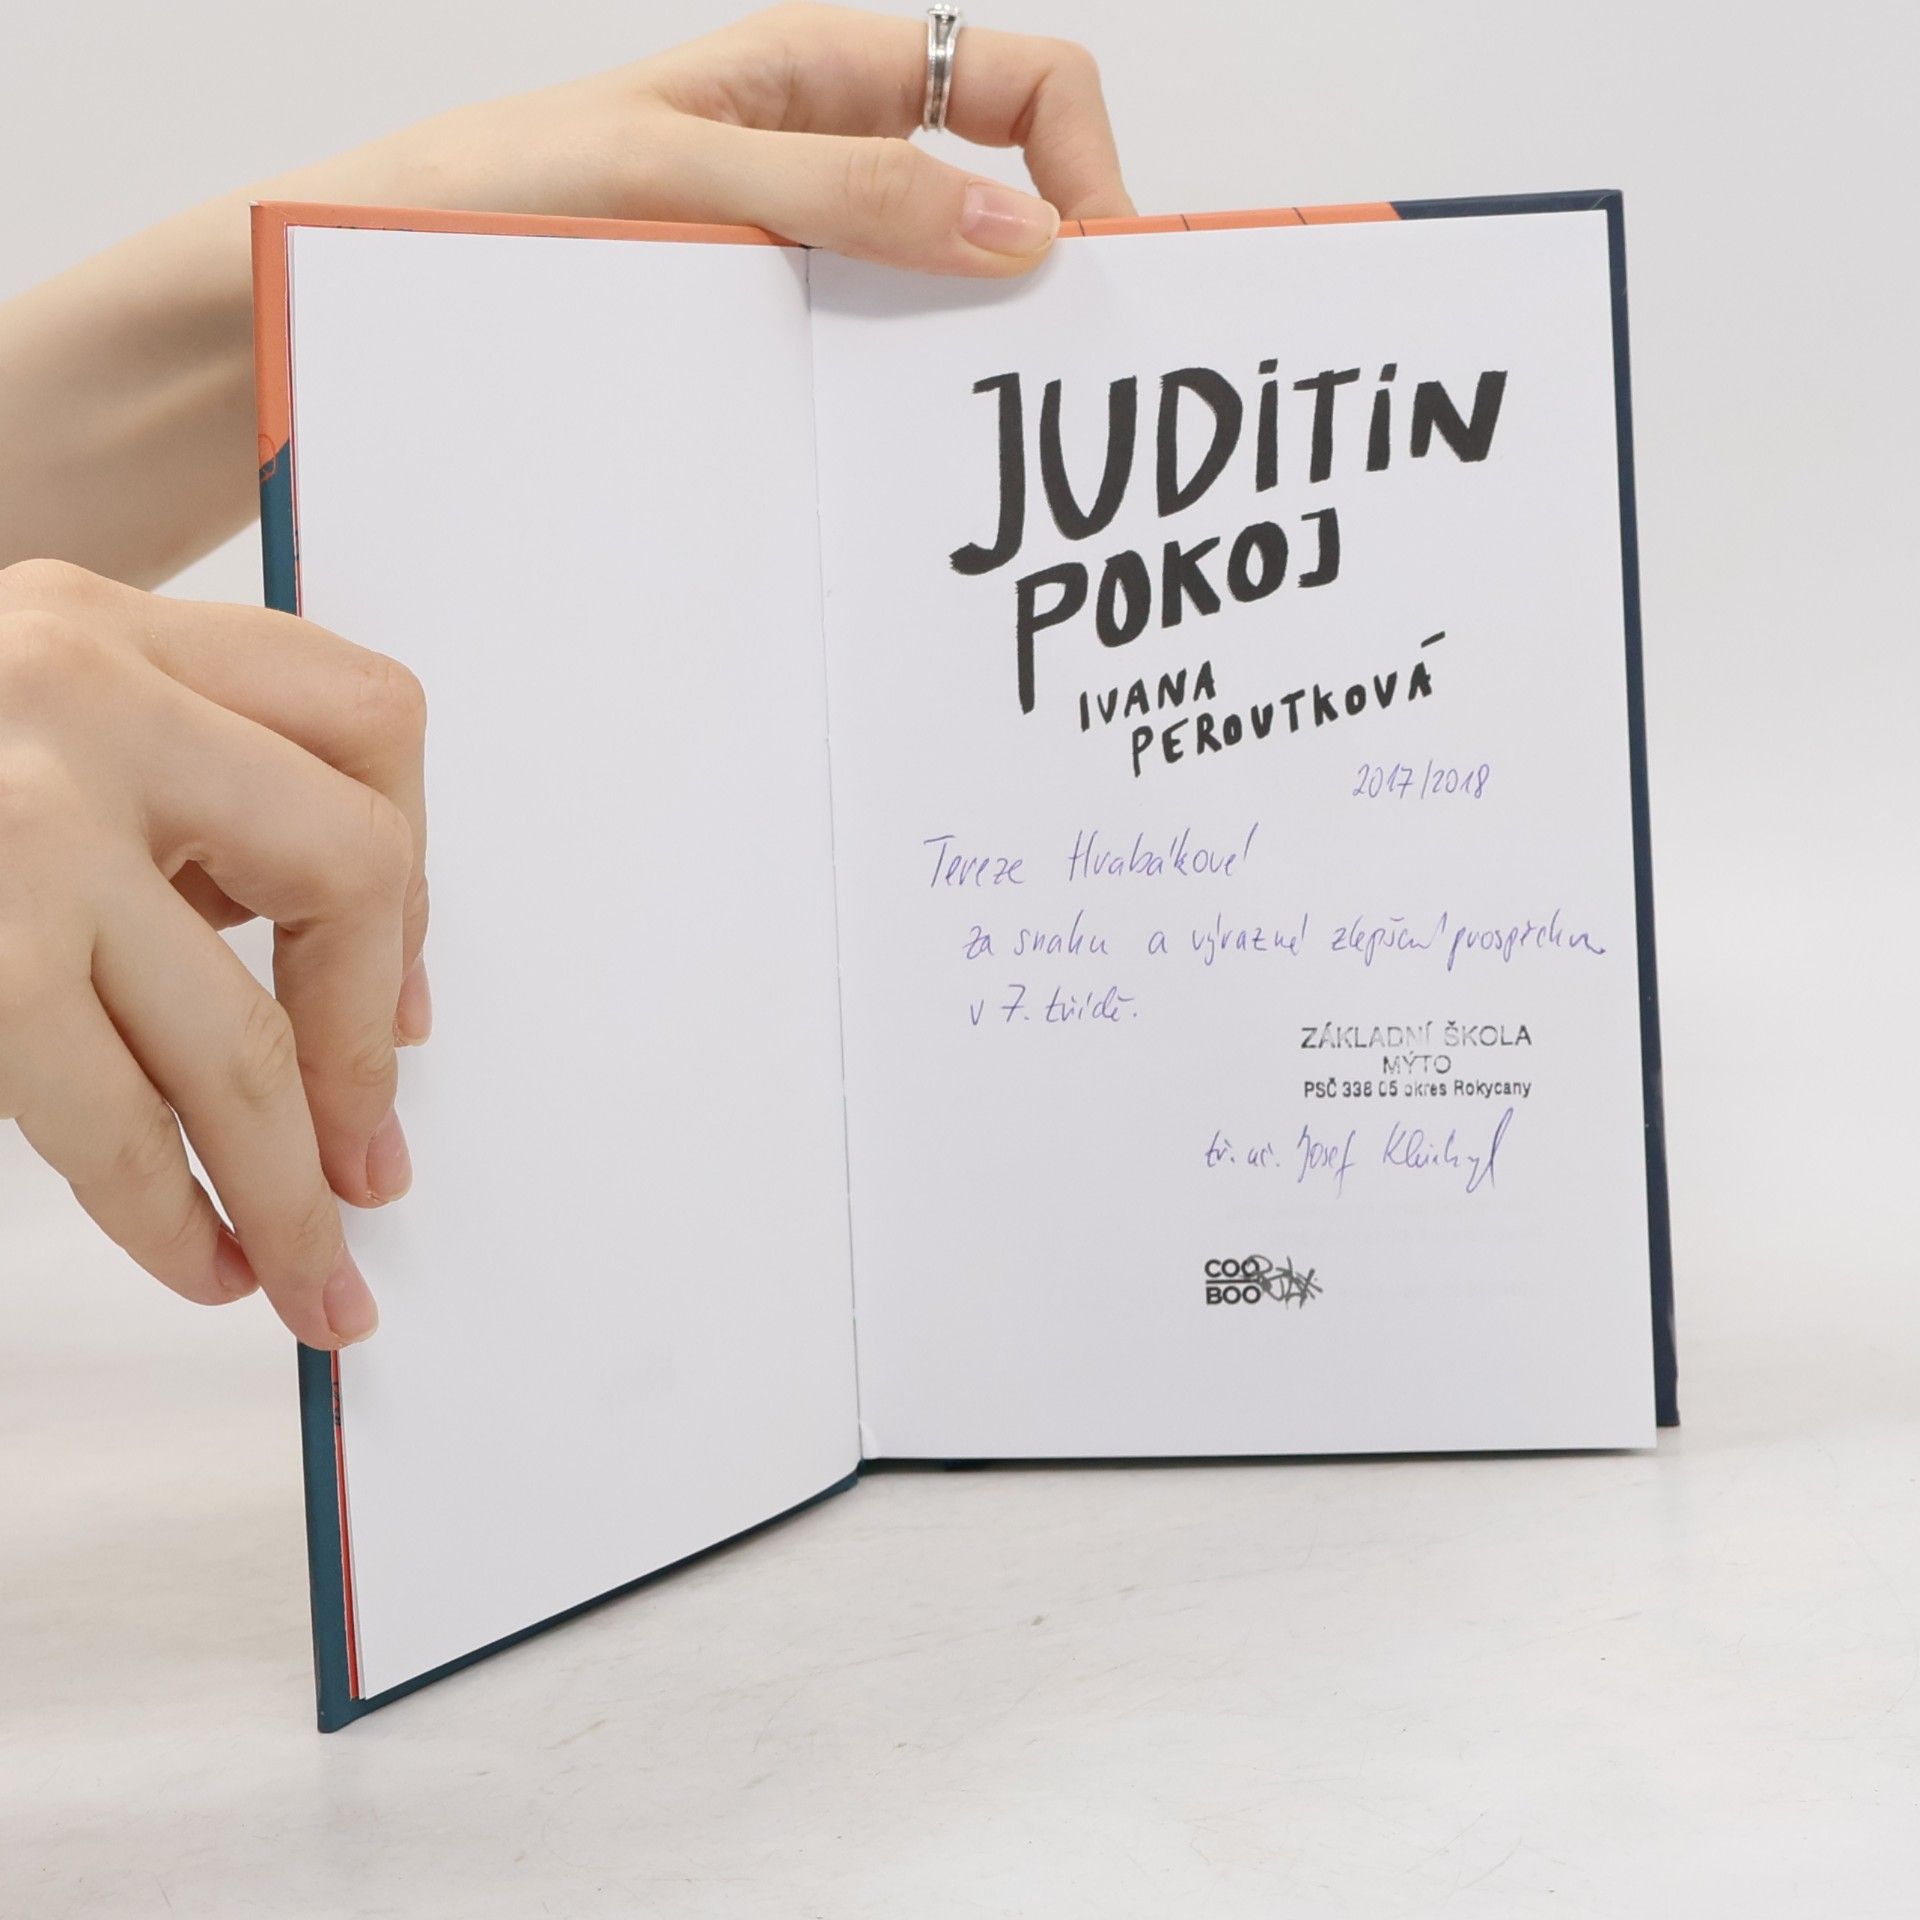 JUDITIN
POKOJ
IVANA
PEROUTKOVÁ
2017/2018
Tereze Hrabákové
za snahu a výrazné zlepšení prospěchu
v 7. třídě.
ZÁKLADNÍ ŠKOLA
MÝTO
PSČ 338 05 okres Rokycany
tř. uč. Josef
COO
BOO